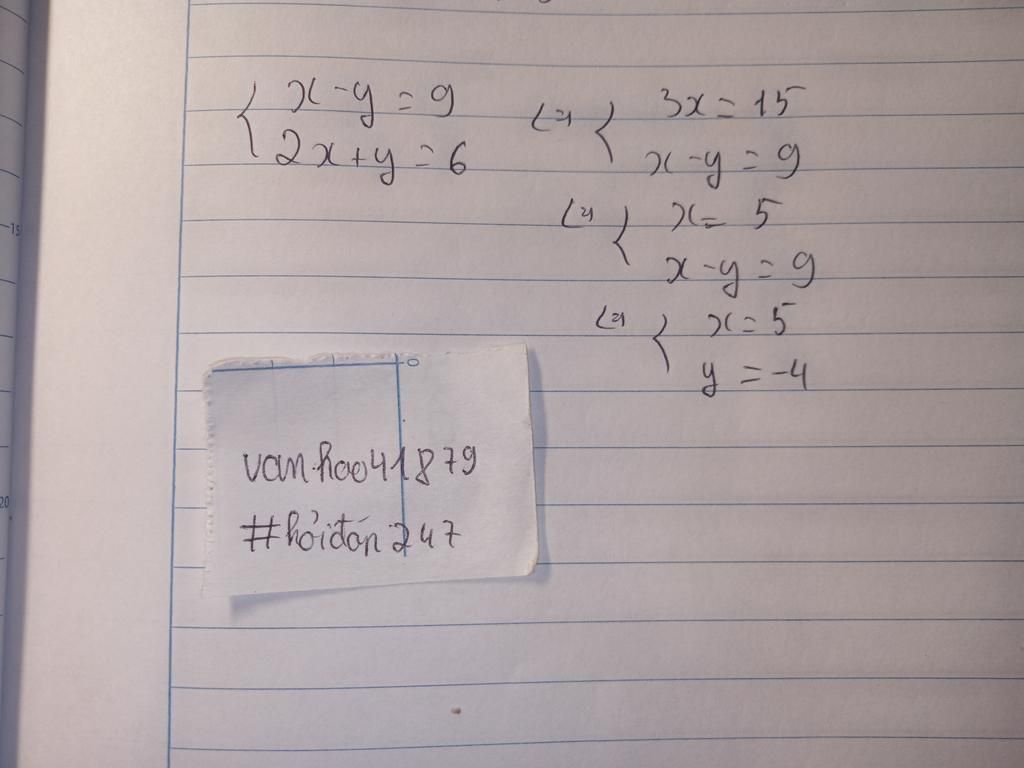 x - y = 9
2x + y = 6
<=> 3x = 15
x - y = 9
<=> x = 5
x - y = 9
<=> x = 5
y = -4
0
15
20
van.hao41879
#hỏiđáp 247